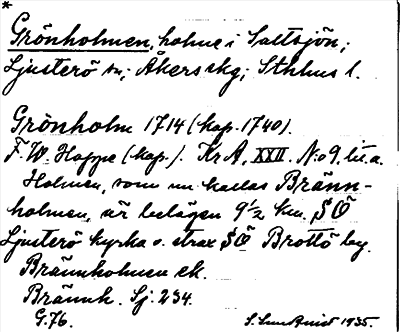 *
Grönholmen, holme i Saltsjön;
Ljusterö sn; Åkers skg; Sthlms l.
Grönholm 1714 (kop. 1740).
F. W. Hoppe (kop.). KrA, XXII. No 9. lit. a.
Holmen, som nu kallas Bränn-
holmen, är belägen 9 1/2 km. SÖ
Ljusterö kyrka o. strax SÖ Brottö by.
Brännholmen ek.
Brännh. Sj. 234.
G. 76.
S. Lundquist 1935